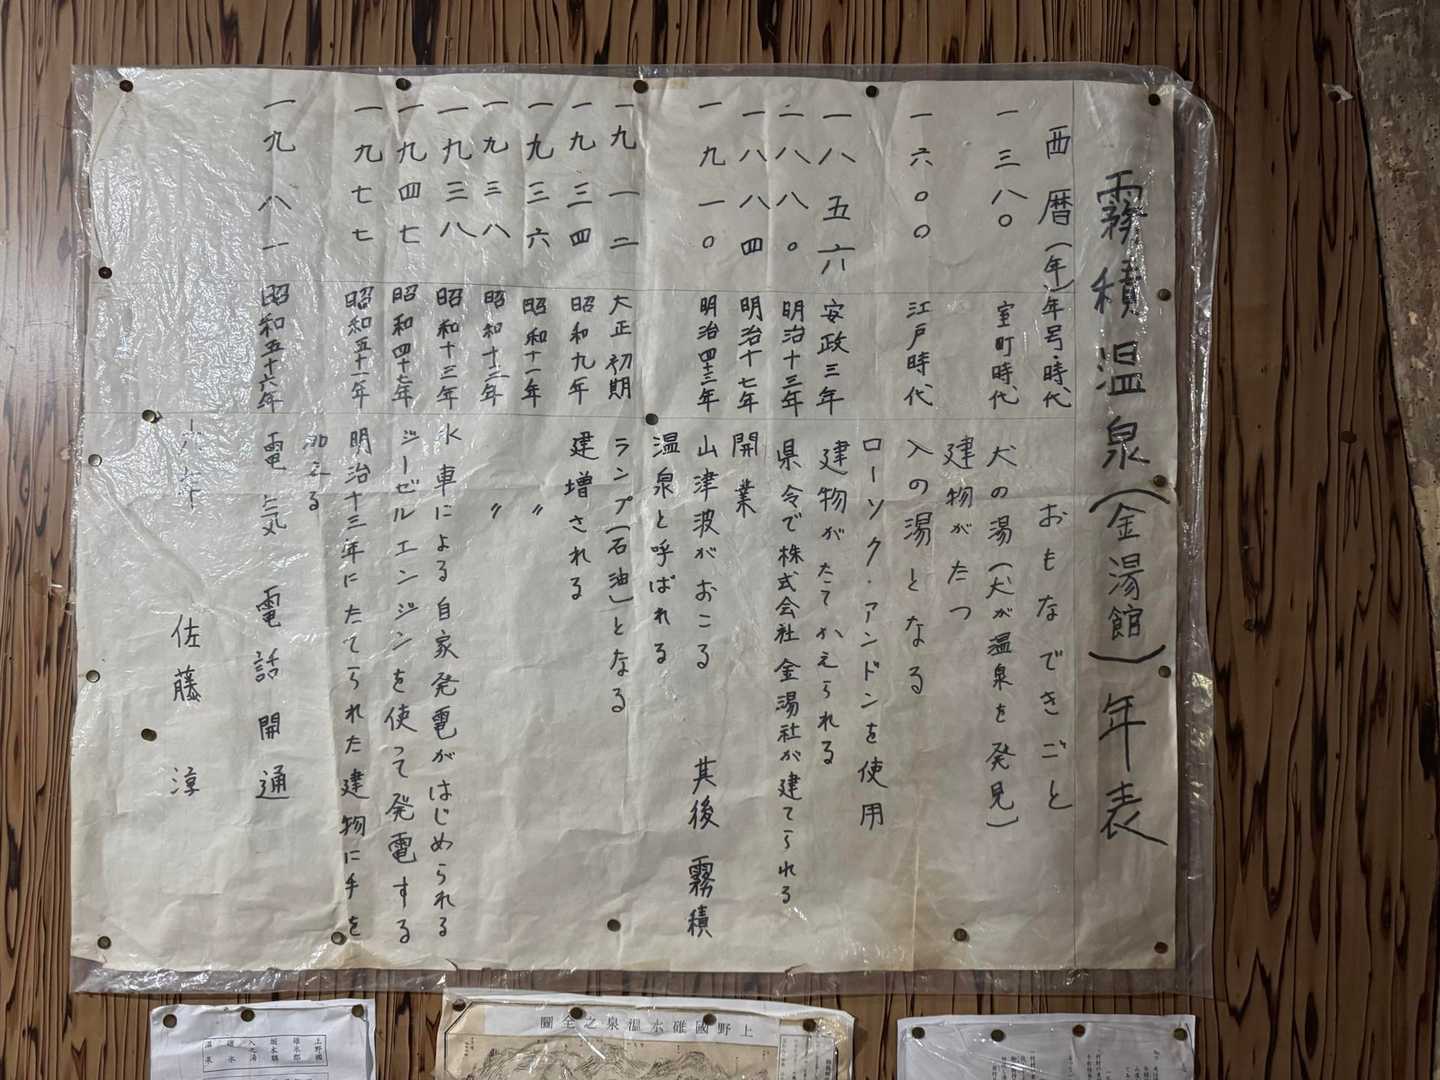 霧積温泉(金湯館)年表
西暦(年)年号・時代 おもなできごと
一三八〇 室町時代 犬の湯(犬が温泉を発見)
建物がたつ
一六〇〇 江戸時代 入の湯となる
ローソク・アンドンを使用
一八五六 安政三年 建物がたてかえられる
一八八〇 明治十三年 県令で株式会社金湯社が建てられる
一八八四 明治十七年 開業
一九一〇 明治四十三年 山津波がおこる 其後 霧積
温泉と呼ばれる
一九一二 大正初期 ランプ(石油)となる
一九三四 昭和九年 建増される
一九三六 昭和十一年 〃
一九三八 昭和十三年 〃
一九三八 昭和十三年 水車による自家発電がはじめられる
一九四七 昭和四十七年 ジーゼルエンジンを使って発電する
一九七七 昭和五十一年 明治十三年にたてられた建物に手を
加える
一九八一 昭和五十六年 電気 電話開通
六年 佐藤 淳
上野國碓氷温泉之全圖
上野國
碓氷郡
坂本驛
入之湯
碓氷
温泉